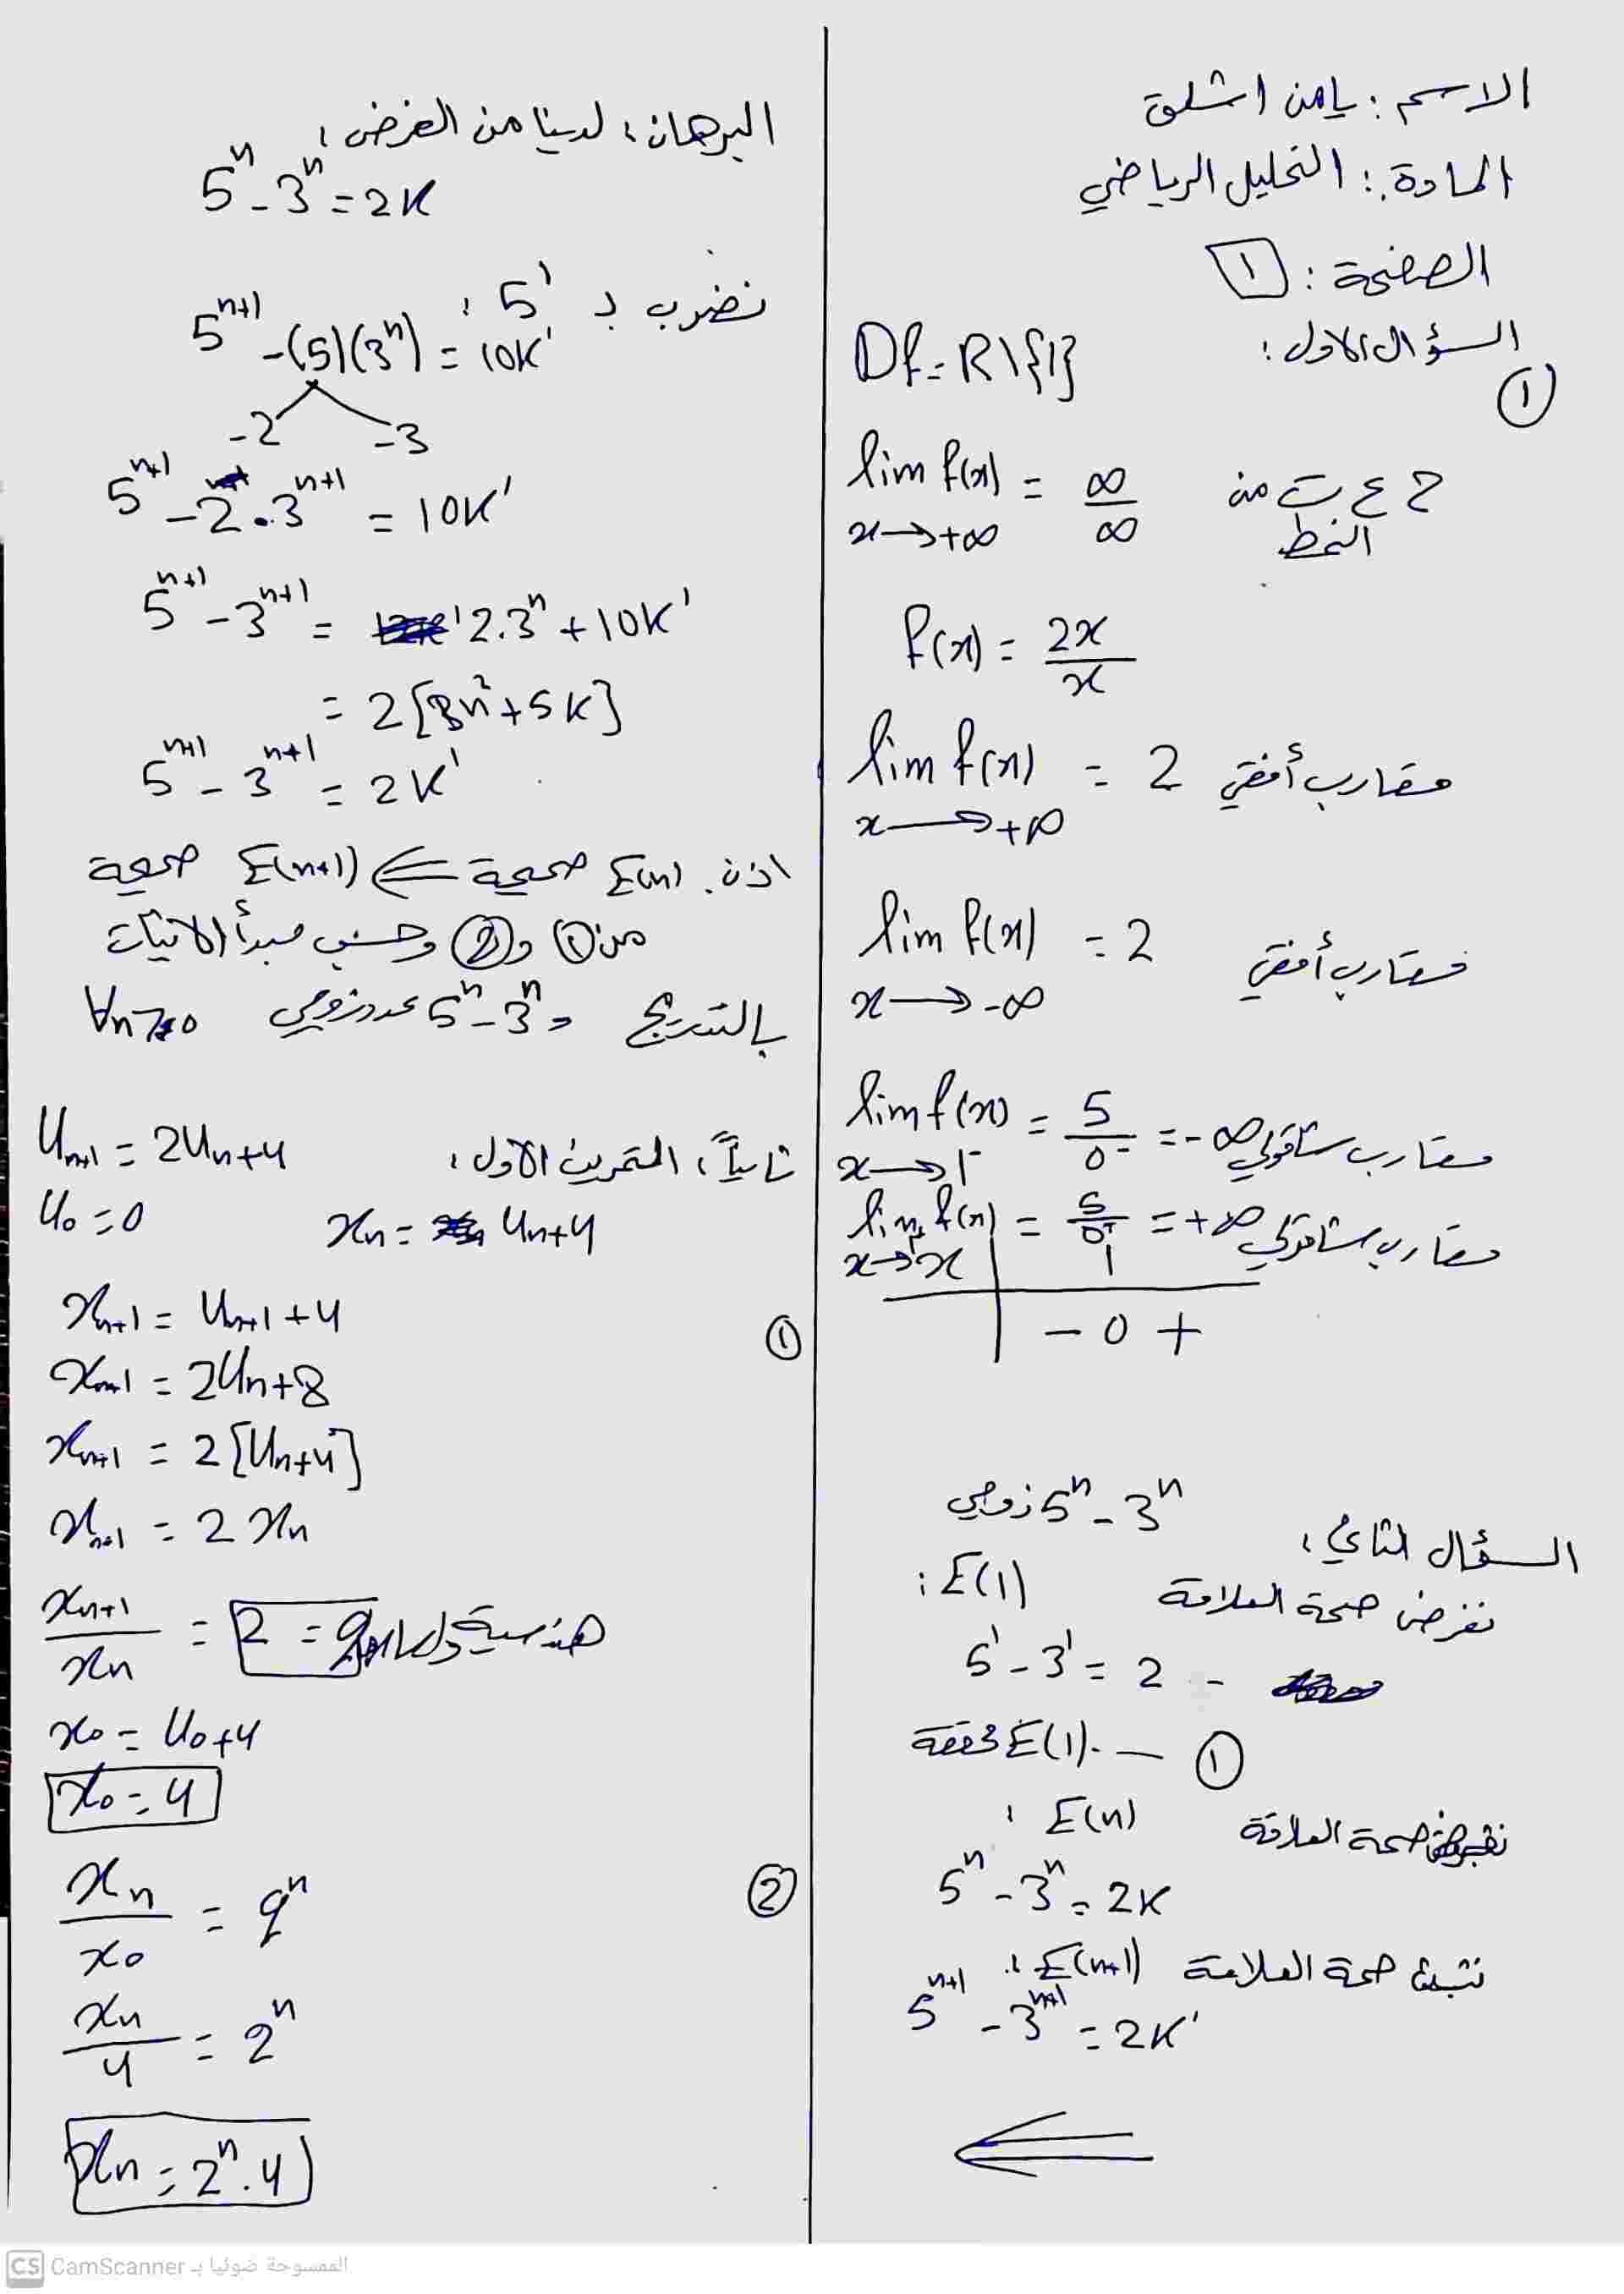 الاسم : يامن اشلق
المادة : التحليل الرياضي
الصفحة : ١
السؤال الاول :
①
Df = R\{1}
lim f(x) = ∞/∞ ح ع ت من النمط
x→+∞
f(x) = 2x/x
lim f(x) = 2 مقارب أفقي
x→+∞
lim f(x) = 2 مقارب أفقي
x→-∞
lim f(x) = 5/0⁻ = -∞ مقارب شاقولي
x→1⁻
lim f(x) = 5/0⁺ = +∞ مقارب شاقولي
x→1⁺
x | 1
| - 0 +
السؤال الثاني : 5ⁿ - 3ⁿ زوجي
نفرض صحة العلاقة E(1) :
5¹ - 3¹ = 2
① — E(1) محققة
نفرض صحة العلاقة E(n) :
5ⁿ - 3ⁿ = 2K
نثبت صحة العلاقة E(n+1) :
5ⁿ⁺¹ - 3ⁿ⁺¹ = 2K'
⇐
البرهان : لدينا من الفرض :
5ⁿ - 3ⁿ = 2K
نضرب بـ 5¹ :
5ⁿ⁺¹ - (5)(3ⁿ) = 10K'
-2 -3
5ⁿ⁺¹ - 2·3ⁿ⁺¹ = 10K'
5ⁿ⁺¹ - 3ⁿ⁺¹ = 2.3ⁿ + 10K'
= 2[3n² + 5K]
5ⁿ⁺¹ - 3ⁿ⁺¹ = 2K'
اذن E(n) صحيحة ⇐ E(n+1) صحيحة
من ① و ② وحسب مبدأ الاثبات
بالتدريج 5ⁿ - 3ⁿ عدد زوجي ∀n≥0
ثانياً : التمرين الاول :
Un+1 = 2Un+4
U0 = 0
xn = Un+4
①
xn+1 = Un+1 + 4
xn+1 = 2Un+8
xn+1 = 2[Un+4]
xn+1 = 2xn
xn+1/xn = 2 = q هندسية
x0 = U0+4
x0 = 4
②
xn/x0 = qⁿ
xn/4 = 2ⁿ
xn = 2ⁿ.4
CS CamScanner الممسوحة ضوئيا بـ